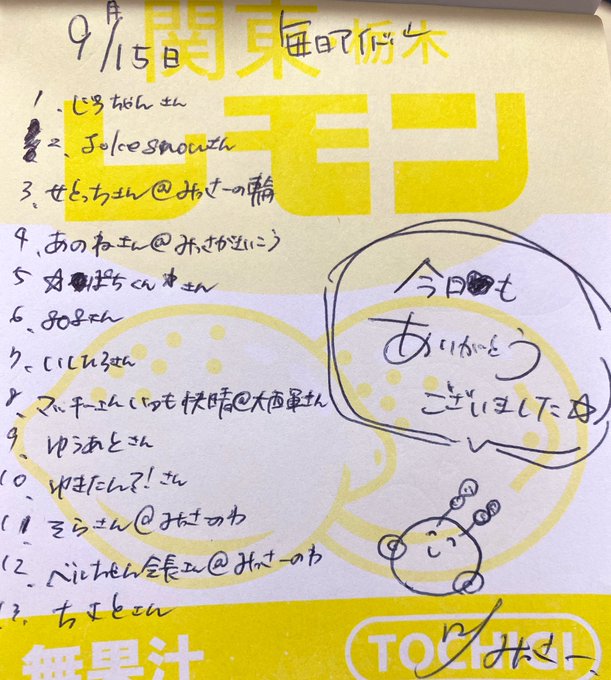 9月/15日 毎日アイドル
関東・栃木
レモン
1、じろちゃんさん
2、Jokesnowさん
3、せとっちさん@みっさーの輪
4、あのねさん@みっさがいこう
5 ☆ぽちくん★さん
6、さん
7、いしひろさん
8、マッチーさんいつも快晴@大西軍さん
9、ゆうあとさん
10、ゆきたんて!さん
11、そらさん@みっさーのわ
12、べルちゃん会長さん@みっさーのわ
13、ちまとさん
今日も
ありがとう
ございました☆
みっさー、
無果汁
TOCHIGI